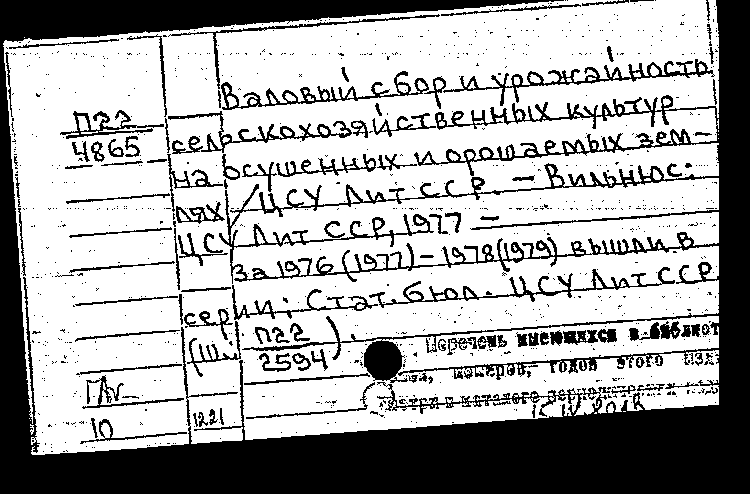 Валовый сбор и урожайность
П22
4865
сельскохозяйственных культур
на осушенных и орошаемых зем-
лях / ЦСУ Лит ССР. - Вильнюс:
ЦСУ Лит ССР, 1977 -
За 1976 (1977) - 1978 (1979) вышли в
серии: Стат. бюл. ЦСУ Лит ССР
(Ш. П22
2594).
Перечень имеющихся в библиот
номеров, годов этого изд
10
1221